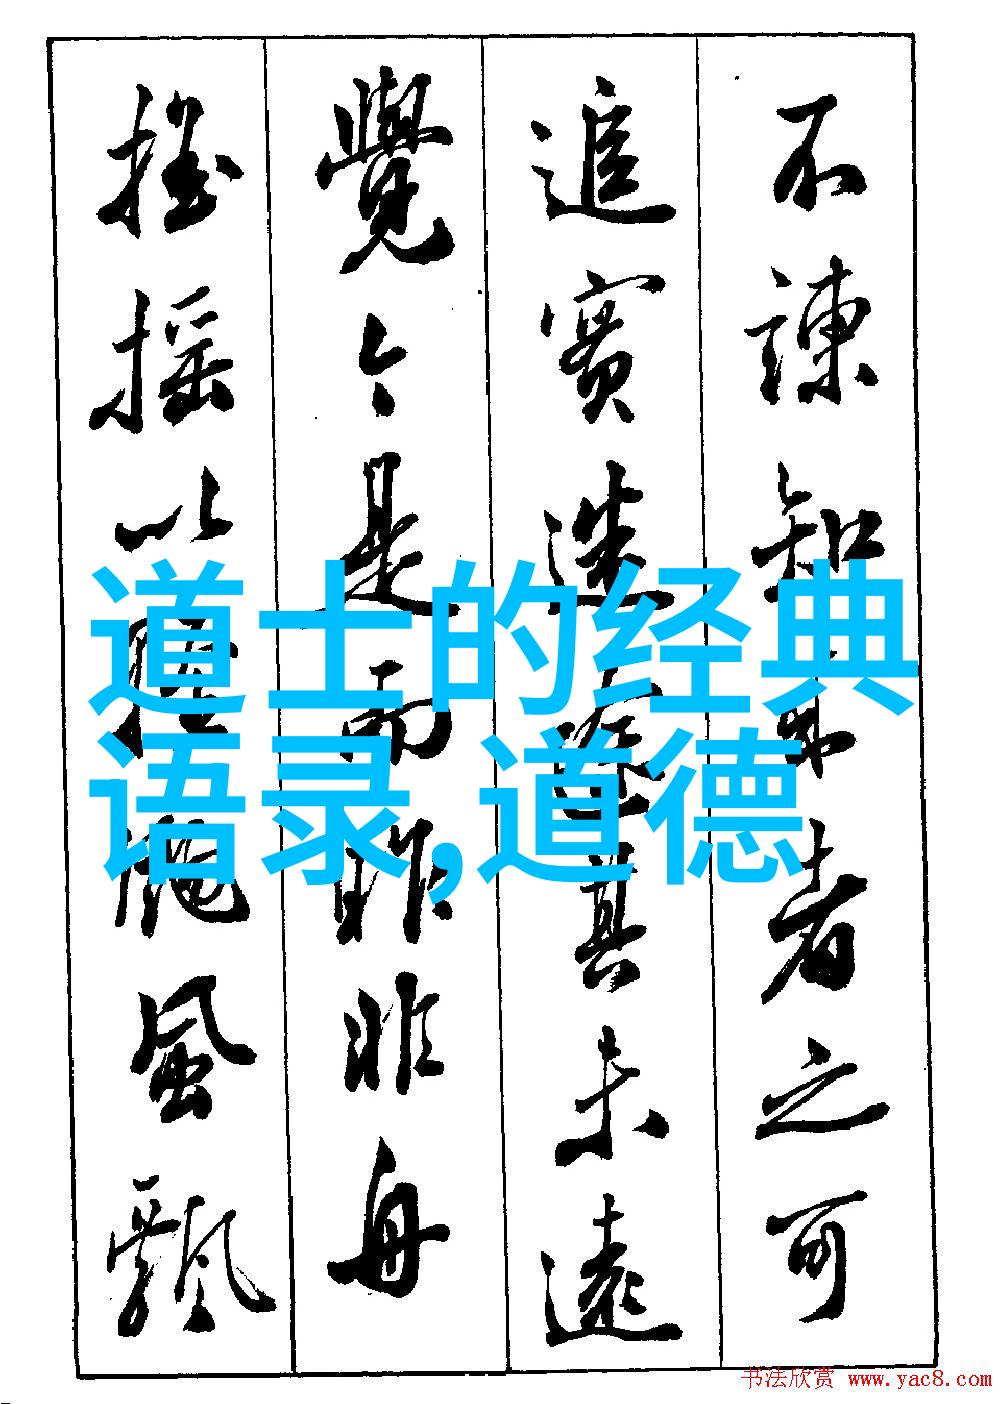 不諫知來者之可
追實迷途其未遠
覺今是而昨非舟
搖搖以輕颺風飄
道士的经典
语录,道德
书法欣赏 www.yac8.com